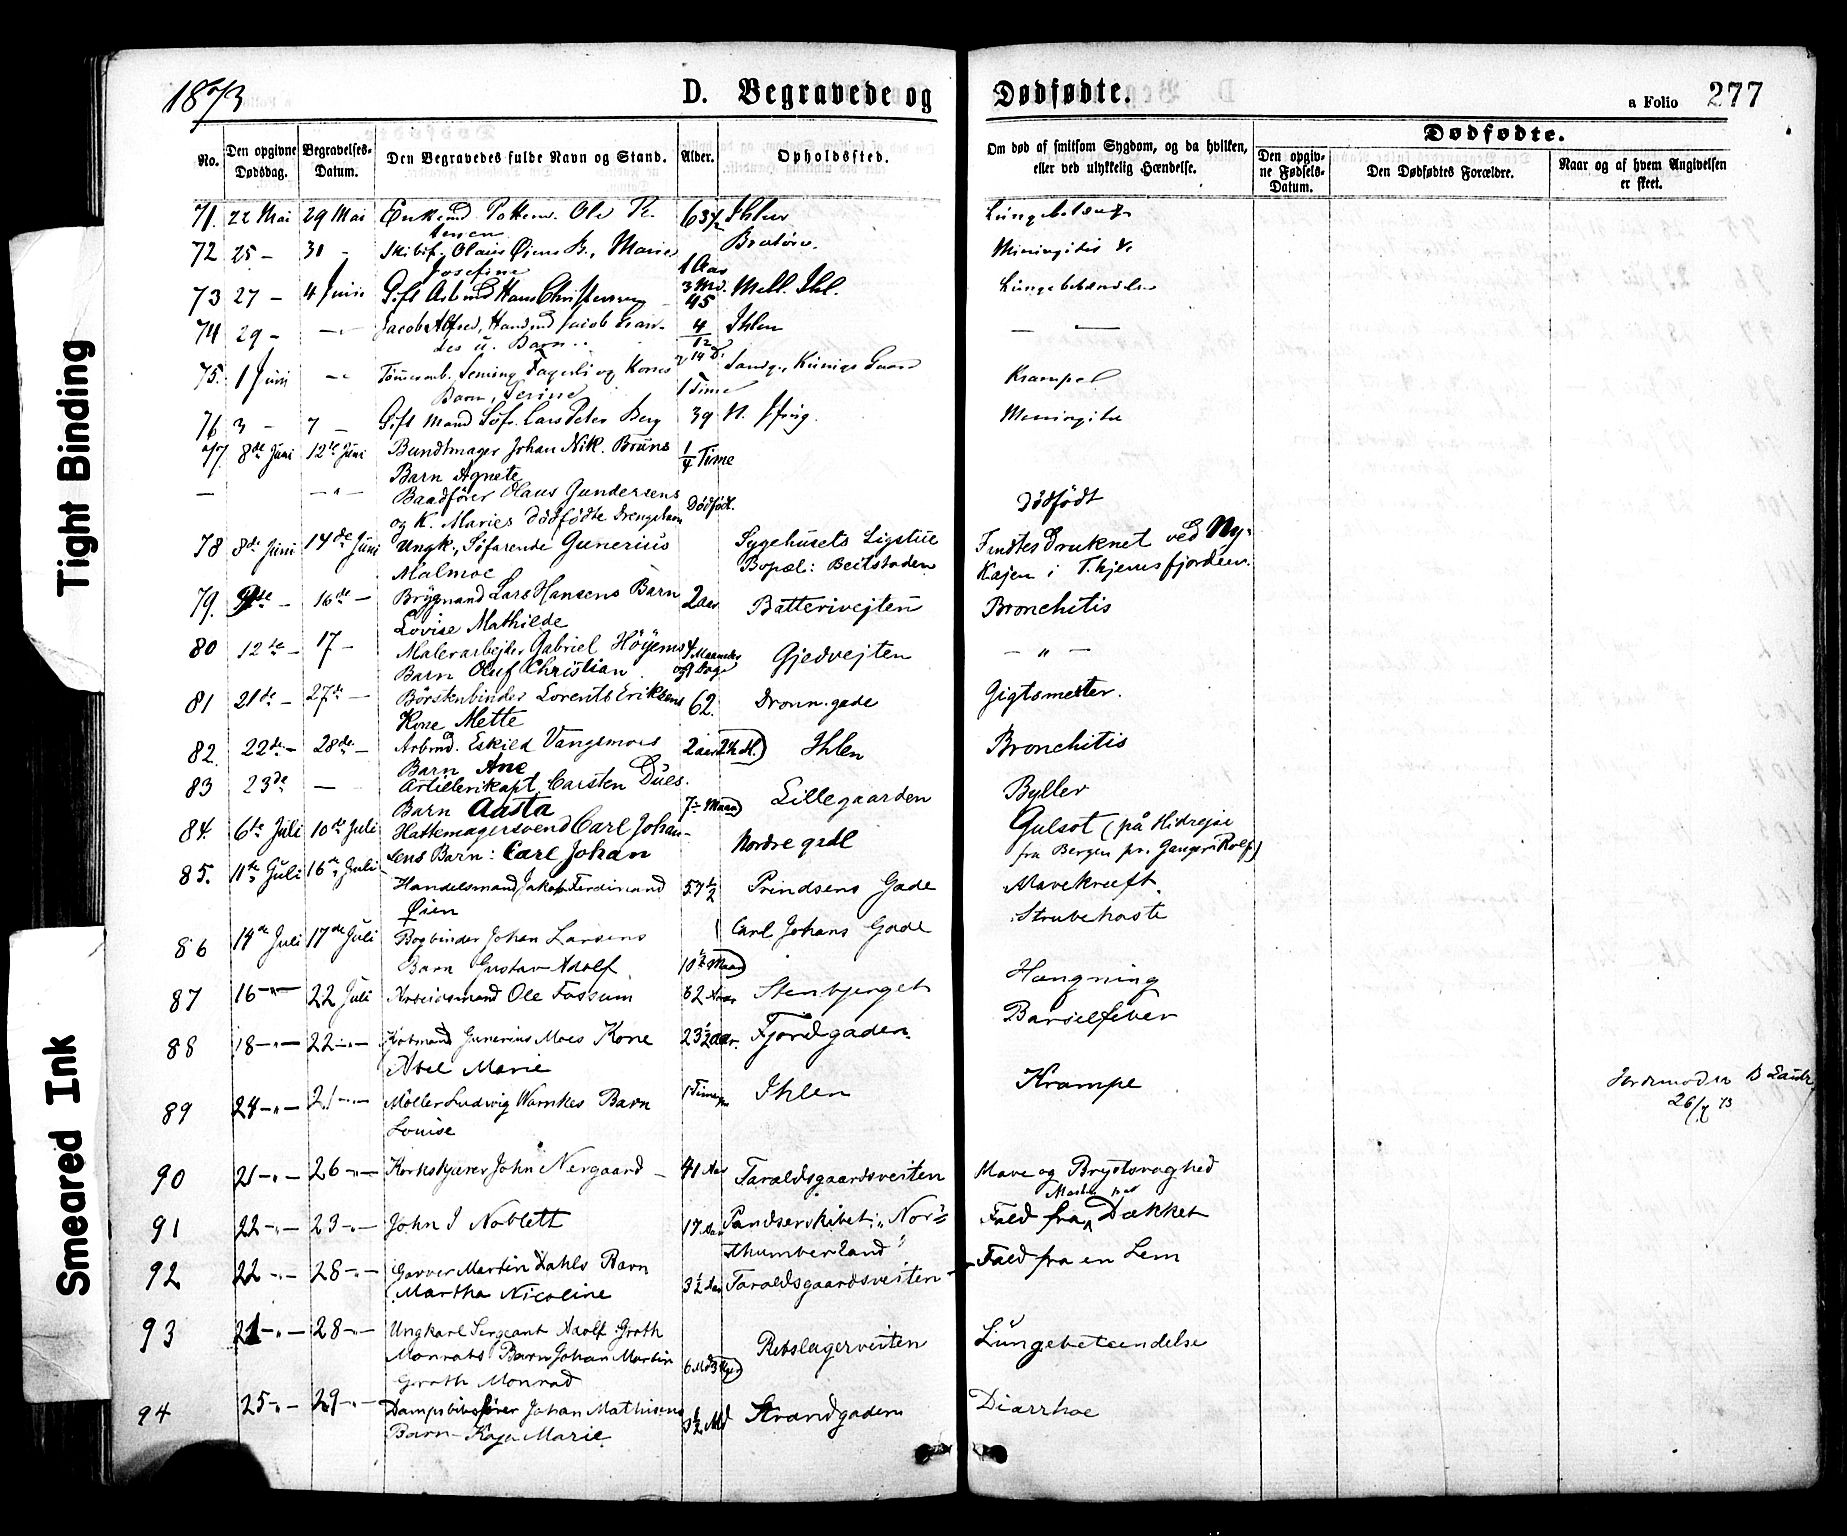 1873
D. Begravede og Dødfødte.
a Folio 277
No.
Den opgivne Dødsdag.
Begravelses-Datum.
Den Begravedes fulde Navn og Stand.
Alder.
Opholdssted.
Om død af smitsom Sygdom, og da hvilken, eller ved ulykkelig Hændelse.
Dødfødte.
Den opgivne Fødsels-Datum.
Den Dødfødtes Forældre.
Naar og af hvem Angivelsen er skeet.
71. 22 Mai 29 Mai Ole 63 Ihlen
72 25 – 30 – Olaus Øiens B., Marie Bratøre.
Josefine 1 Aar 3 Md.
73 27 – 4 Juni Gift Arbmd Hans Christensen 45 Mell. Ihl.
74 29 – Jacob Alfred, Jacob 4/12 Ihlen
u. Barn
75. 1 Juni og Kones
Barn, 1 Time Krampe
76 3 – 7 – Gift Mand Lars Peter Berg 39
77 8de Juni 12te Juni Bundtmager Johan Nik. Bruns 1/4 Time
Barn Agnete
– – " – Baadfører Olaus Gundersens Dødfød. Dødfødt
og K. Maries Dødfødte Drengebarn
78 8de Juni 14de Juni Ungk., Søfarende Gunerius Sygehusets Ligstue Fundtes Druknet ved Ny-
Malmoe Bopæl: Beitstaden Kajen i Thjemsfjorden.
79. – 16de – Brygmand Lars Hansens Barn 2 aar Batterivejten Bronchitis
Lovise Mathilde
80 12te – 17 – Malerarbejder Gabriel Höyems 4 Maaneder Gjedvejten – " –
Barn Oluf Christian og Dage
81 21de – 27de – Börstenbinder Lorents Eriksens 62. Dronn. gade Gigtsmerter.
Kone Mette
82. 22de – 28de – Arbmd. Eskild Vangsmoes 2 aar Ihlen Bronchitis
Barn Ane
83 23de – Artillerikapt. Carsten Dües. Lillegaarden Byller
Barn Aasta 7 Maan
84. 6te Juli 10de Juli Hattemagersvend Carl Johan- Nordre gade Gulsot (på Hidrejse
sens Barn: Carl Johan fra Bergen pr. Ganger Rolf)
85. 11te Juli 16de Juli Handelsmand Jakob Ferdinand 57 1/2 Prindsens Gade Mavekræft.
Øien
86 14de Juli 17de Juli Bogbinder Johan Larsens 1 Carl Johans Gade Strubehoste
Barn Gustav Adolf 10 1/2 Maan
87 16 –"– 22 Juli Arbeidsmand Ole Fossum 62 Aar Stenbjerget Hængning
88 18 –"– 22 –"– Kjøbmand Gunerius Moes Kone 23 1/2 aar. Fjordgaden Barselfeber
Abel Marie
89 24 –"– –"– Møller Ludvig Warnkes Barn 1 Time Ihlen Krampe Jordemoder B
Louise 26/7 73
90 21 –"– 26 –"– Korkskjærer John Nergaard – 41 Aar Taraldsgaardsveiten Mave og Brystsvaghed
91 22 –"– 23 –"– John J Noblett 17 Aar Pandserskibet „Nor- Fald fra Dækket
thumberland"
92 22 –"– 28 –"– Garver Martin Dahls Barn 3 1/2 Aar Taraldsgaardsveiten Fald fra en Lem
Martha Nicoline
93 21 –"– 28 –"– Ungkarl Sergeant Adolf Groth Rebslagerveiten Lungebetændelse
Monrads Barn Johan Martin
Groth Monrad
94 25 –"– 29 –"– Dampskibsfører Johan Mathisens 3 1/2 Md Strandgaden Diarrhoe
Barn Kaja Marie
Tight Binding
Smeared Ink